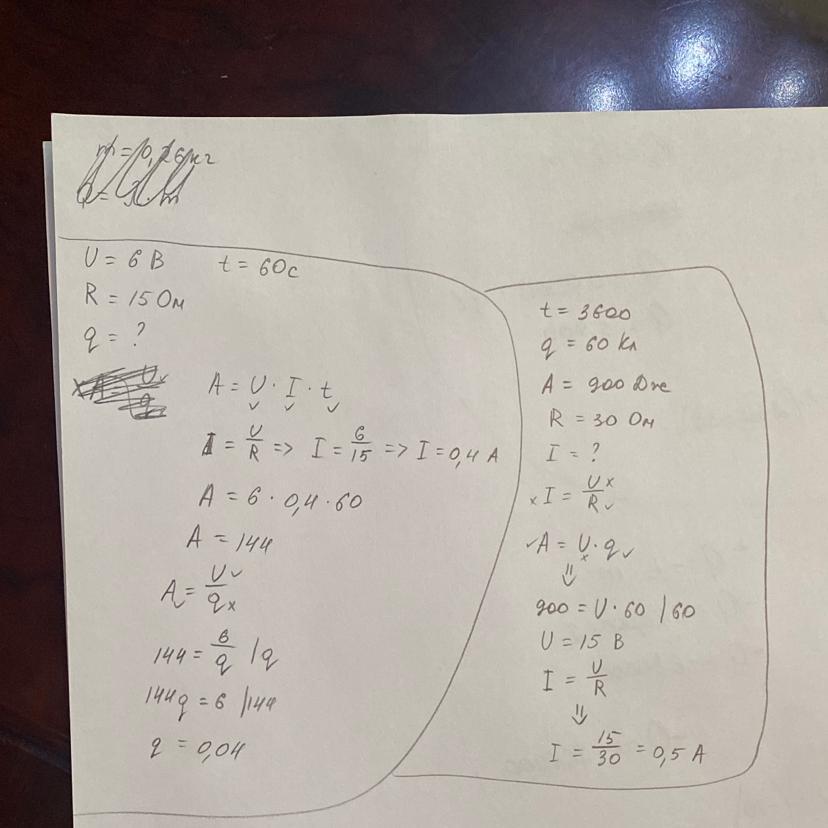 U = 6 В t = 60с
R = 15 Ом
q = ?
A = U · I · t
I = U/R => I = 6/15 => I = 0,4 A
A = 6 · 0,4 · 60
A = 144
A = U/q x
144 = 6/q /q
144q = 6 /144
q = 0,04
t = 3600
q = 60 Кл
A = 900 Дже
R = 30 Ом
I = ?
x I = U/R x
A = U · q
x
⇓
900 = U · 60 /60
U = 15 В
I = U/R
⇓
I = 15/30 = 0,5 A